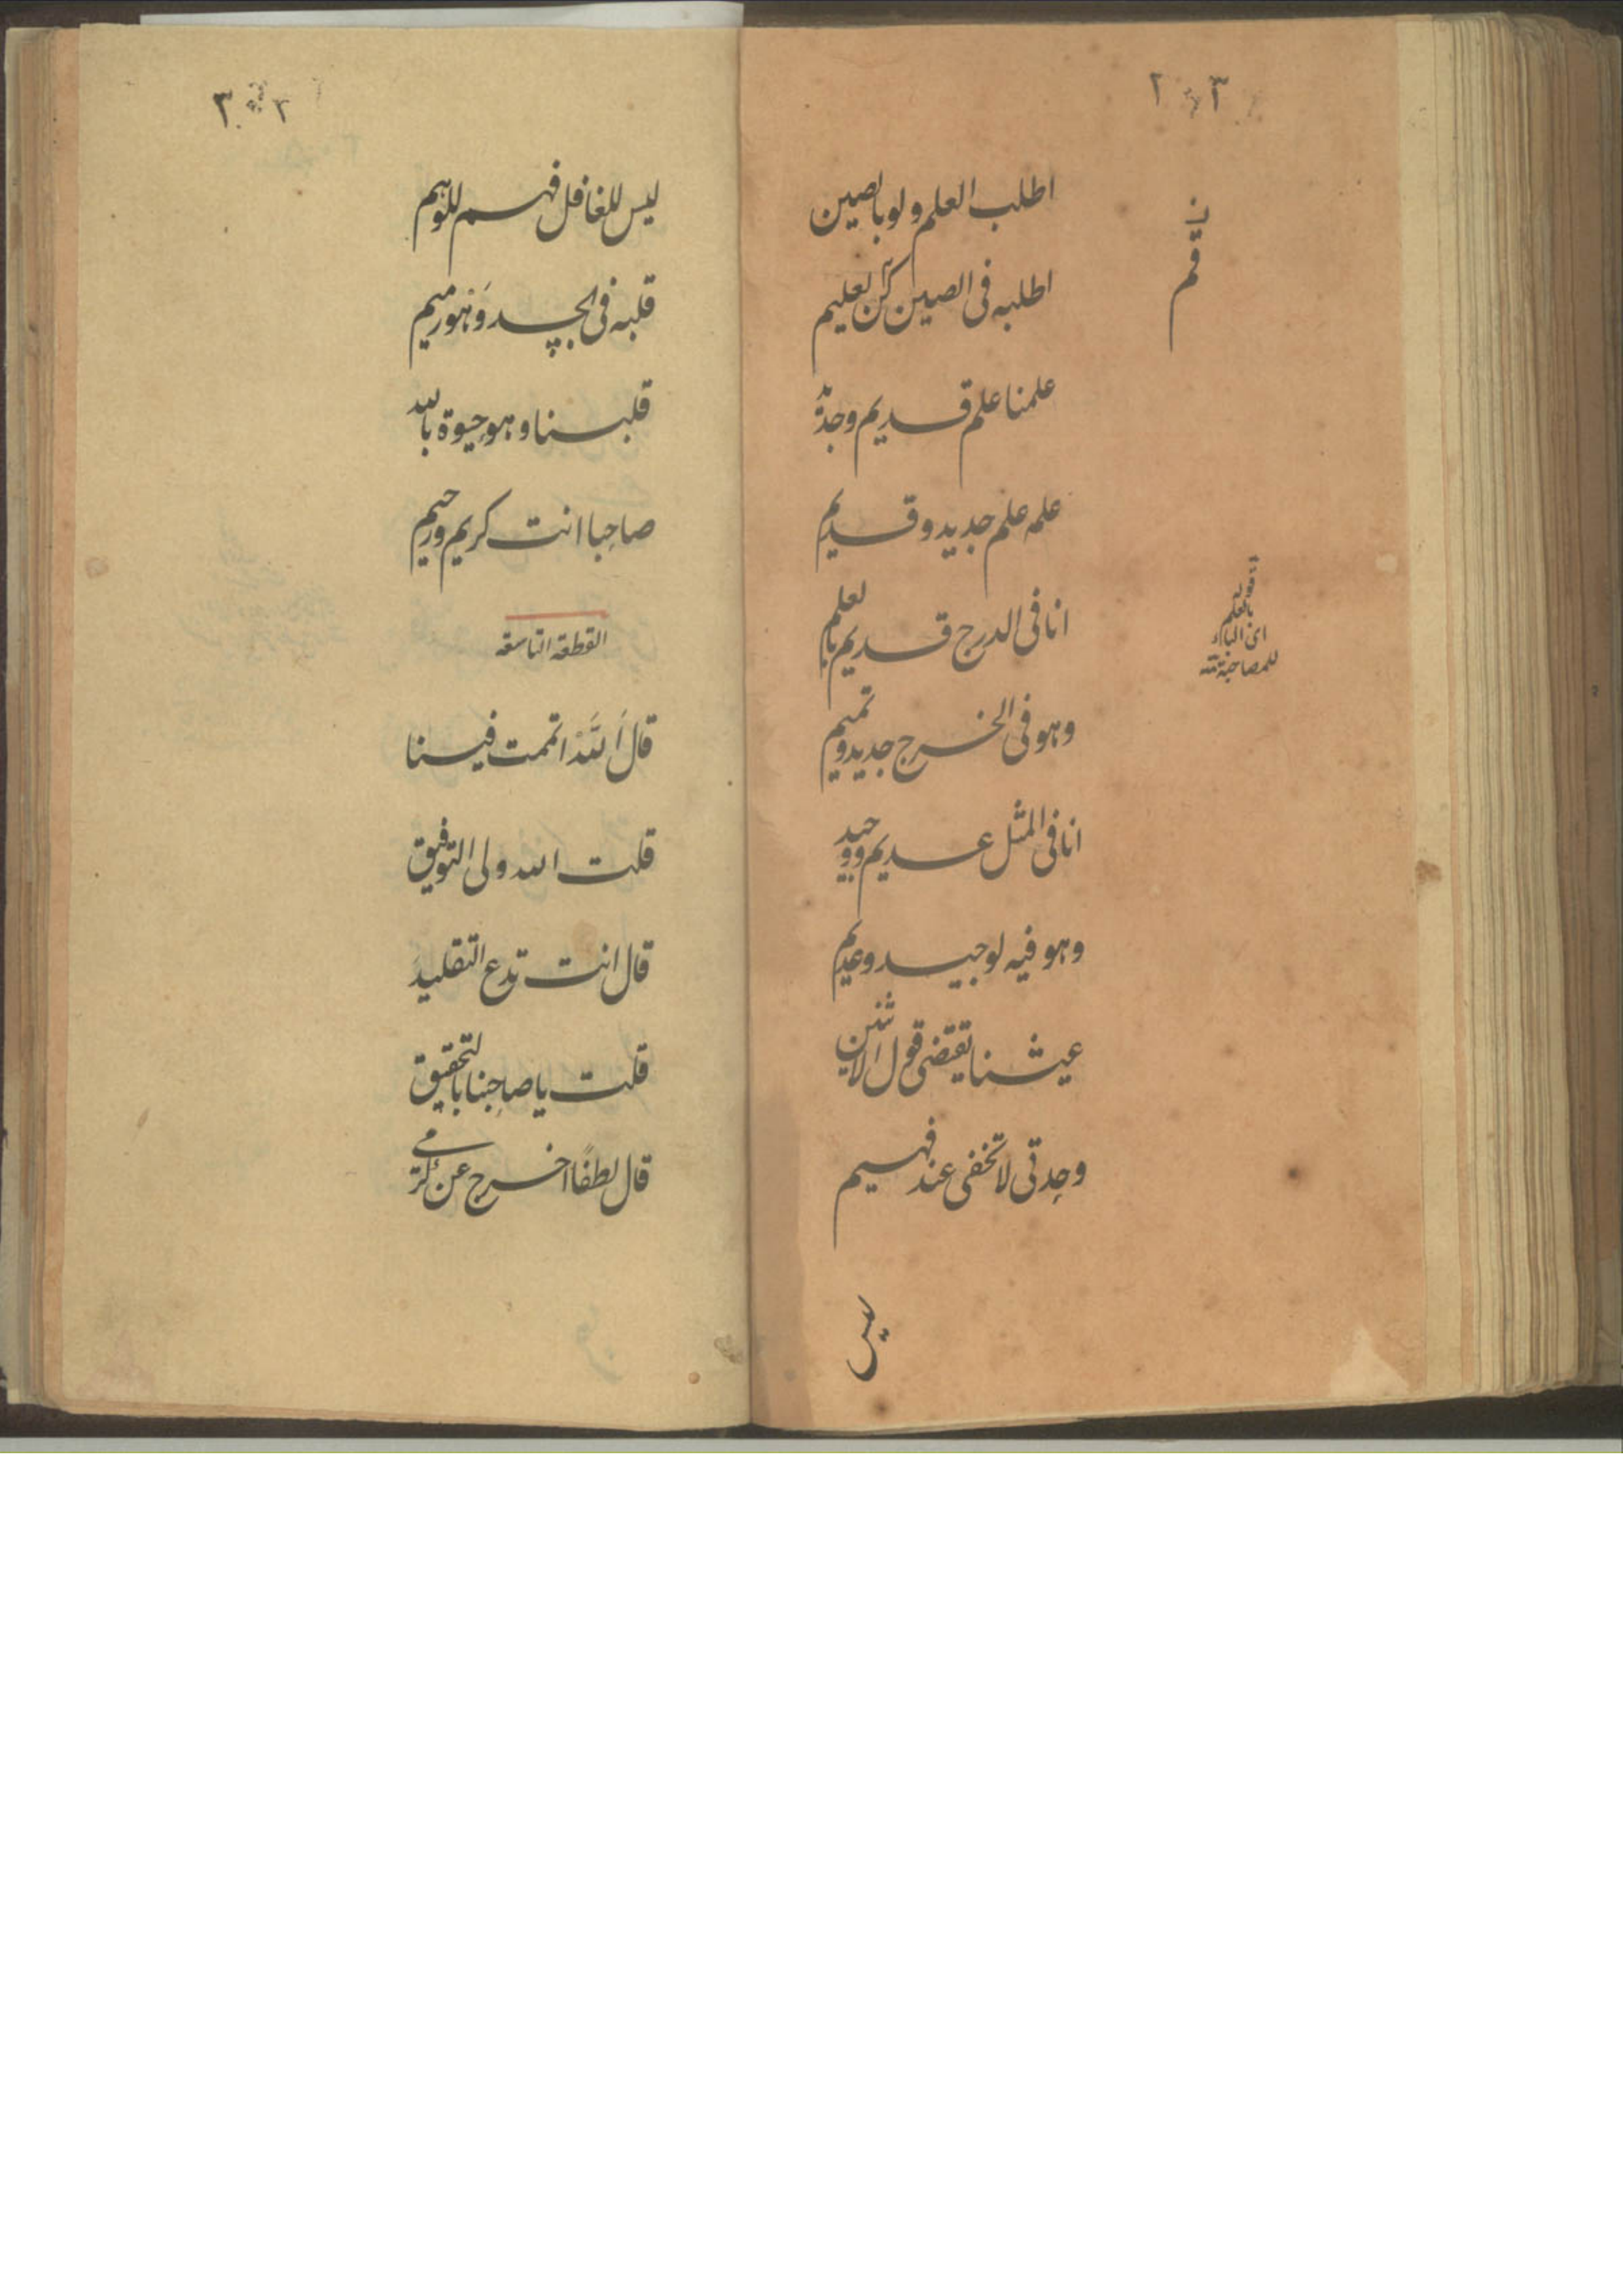 اطلب العلم ولو بالصین
اطلبه فی الصین کن لعلیم
علمنا علم قدیم وجدّ
علمه علم جدید وقدیم
انا فی الدرج قدیم بالعلم
وهو فی الخرج جدید ویم
انا فی المثل عدیم ووحید
وهو فیه لوحید وعدیم
عیشنا یقتضی قول الاثنین
وحدتی لا تخفی عند فهیم
لیس
قم
قوله
بالعلم
ای الباء
للمصاحبة
لیس للغافل فهم للوهم
قلبه فی الجسد وَهْو رمیم
قلبنا وهو حیوة بالله
صاحبا انت کریم ورحیم
القطعة التاسعة
قال اتممت فینا
قلت الله ولی التوفیق
قال انت تدع التقلید
قلت یا صاحبنا بالتحقیق
قال لطفًا اخرج عن